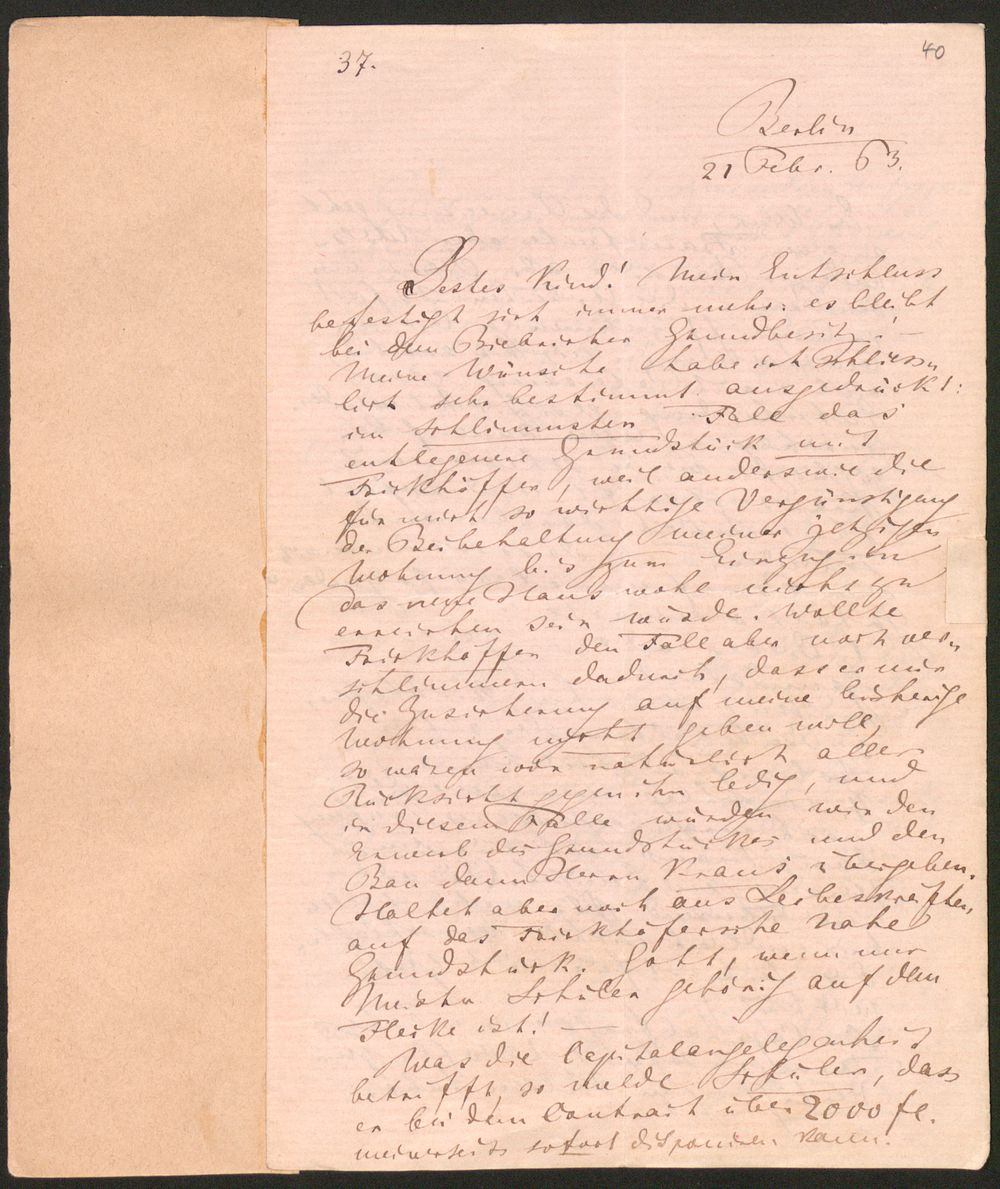 37.
40
Berlin
21 Febr. 63.
Bestes Kind! Mein Entschluss
befestigt sich immer mehr: es bleibt
bei dem Biebricher Grundbesitz! —
Meine Wünsche habe ich schliess-
lich sehr bestimmt ausgedrückt:
im schlimmsten Fall das
entlegenere Grundstück mit
Frickhöffer, weil anderswie die
für mich so wichtige Vergünstigung
der Beibehaltung meiner jetzigen
Wohnung bis zum Einzug in
das neue Haus wohl nicht zu
erreichen sein würde. Wollte
Frickhöffer den Fall aber noch ver-
schlimmern dadurch, dass er mir
die Zusicherung auf meine bisherige
Wohnung nicht geben will,
so wären wir natürlich aller
Rücksicht gegen ihn ledig, und
in diesem Falle würden wir den
Erwerb des Grundstückes und den
Bau dann Herrn Kraus übergeben.
Haltet aber noch aus Leibeskräften
auf das Frickhöfersche nahe
Grundstück. Gott, wenn nur
Meister Schüler gehörig auf dem
Flecke ist! —
Was die Capitalangelegenheit
betrifft, so melde Schüler, dass
er bei dem Contract über 2000 fl.
meinerseits sofort disponiren kann.